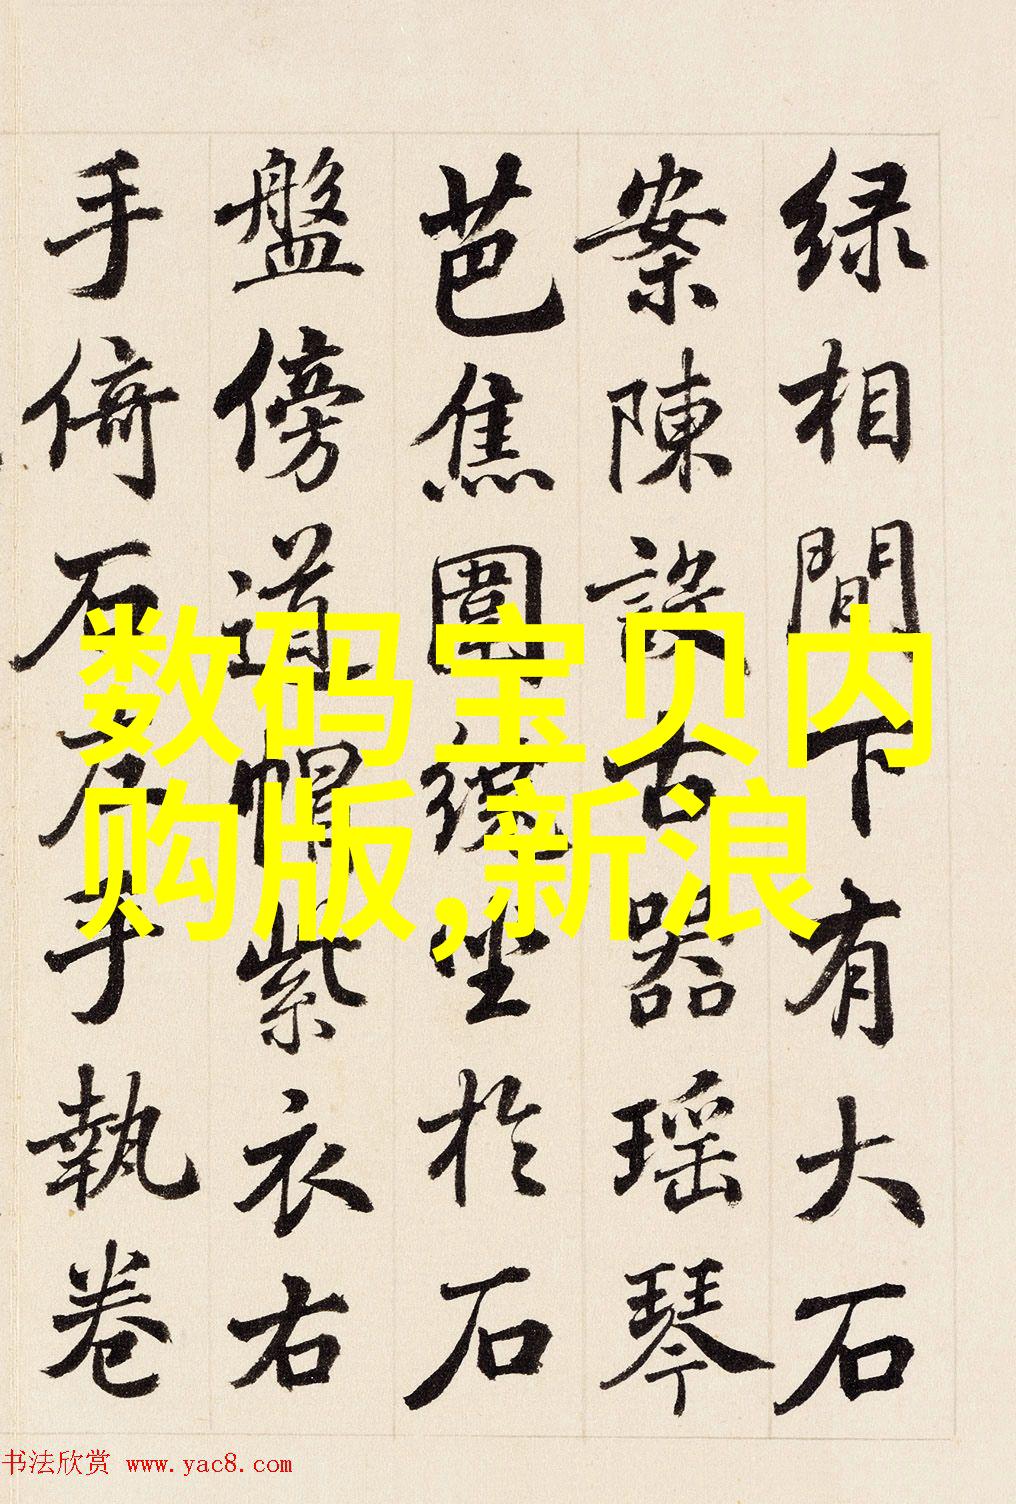 绿相間下有大石
案陳設古器瑶琴
芭焦圍繞坐於石
盤傍道帽紫衣右
手倚石左手執卷
数码宝贝内
购版,新浪
书法欣赏 www.yac8.com